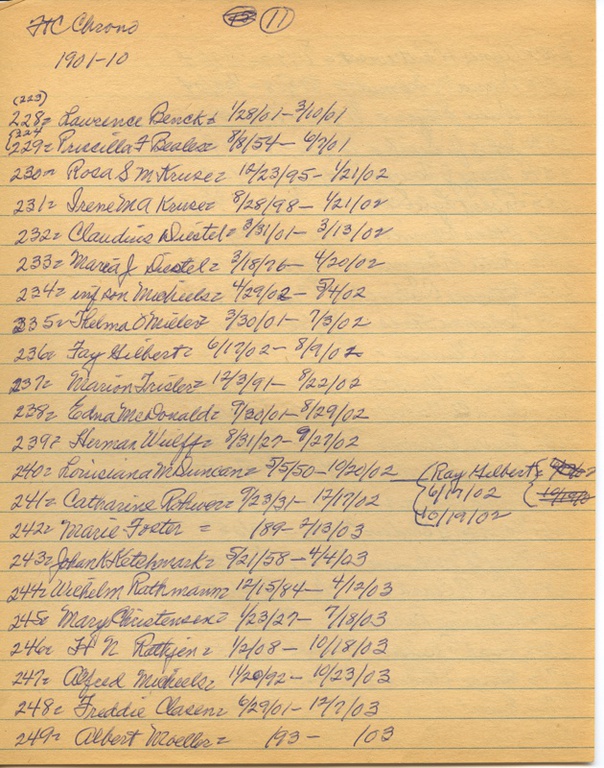 HC Chrono 11
1901-10
(223)
228= Lawrence Benck= 1/28/01-3/10/01
(224
229= Priscilla F Beales= 8/8/54- 6/7/01
230= Rosa S M Kruse= 12/23/95- 1/21/02
231= Irene M A Kruse= 8/28/98- 1/21/02
232= Claudius Diestel= 3/31/01- 3/13/02
233= Maria J Diestel= 3/18/76- 4/20/02
234= inf son Michiels= 4/29/02- 5/4/02
235= Thelma O Miller= 3/30/01- 7/3/02
236= Fay Hilbert= 6/17/02- 8/9/02
237= Marion Trisler= 12/3/91- 8/22/02
238= Edna McDonald= 9/30/01- 8/29/02
239= Herman Wulff= 8/31/27- 9/27/02
240= Louisiana M Duncan= 5/5/50-10/20/02 (Ray Hilbert
241= Catharine Rohwer= 9/23/31- 12/17/02 6/17/02
10/19/02
242= Marie Foster = /89- 2/13/03
243= Johan K Ketchmark= 5/21/58- 4/4/03
244= Wilhelm Rathmann= 12/15/84- 4/12/03
245= Mary Christensen= 1/23/27- 7/18/03
246= H N Rathjen= 1/2/08- 10/18/03
247= Alfred Michels= 11/20/92- 10/23/03
248= Freddie Clasen= 6/29/01- 12/7/03
249= Albert Moeller= /93- /03